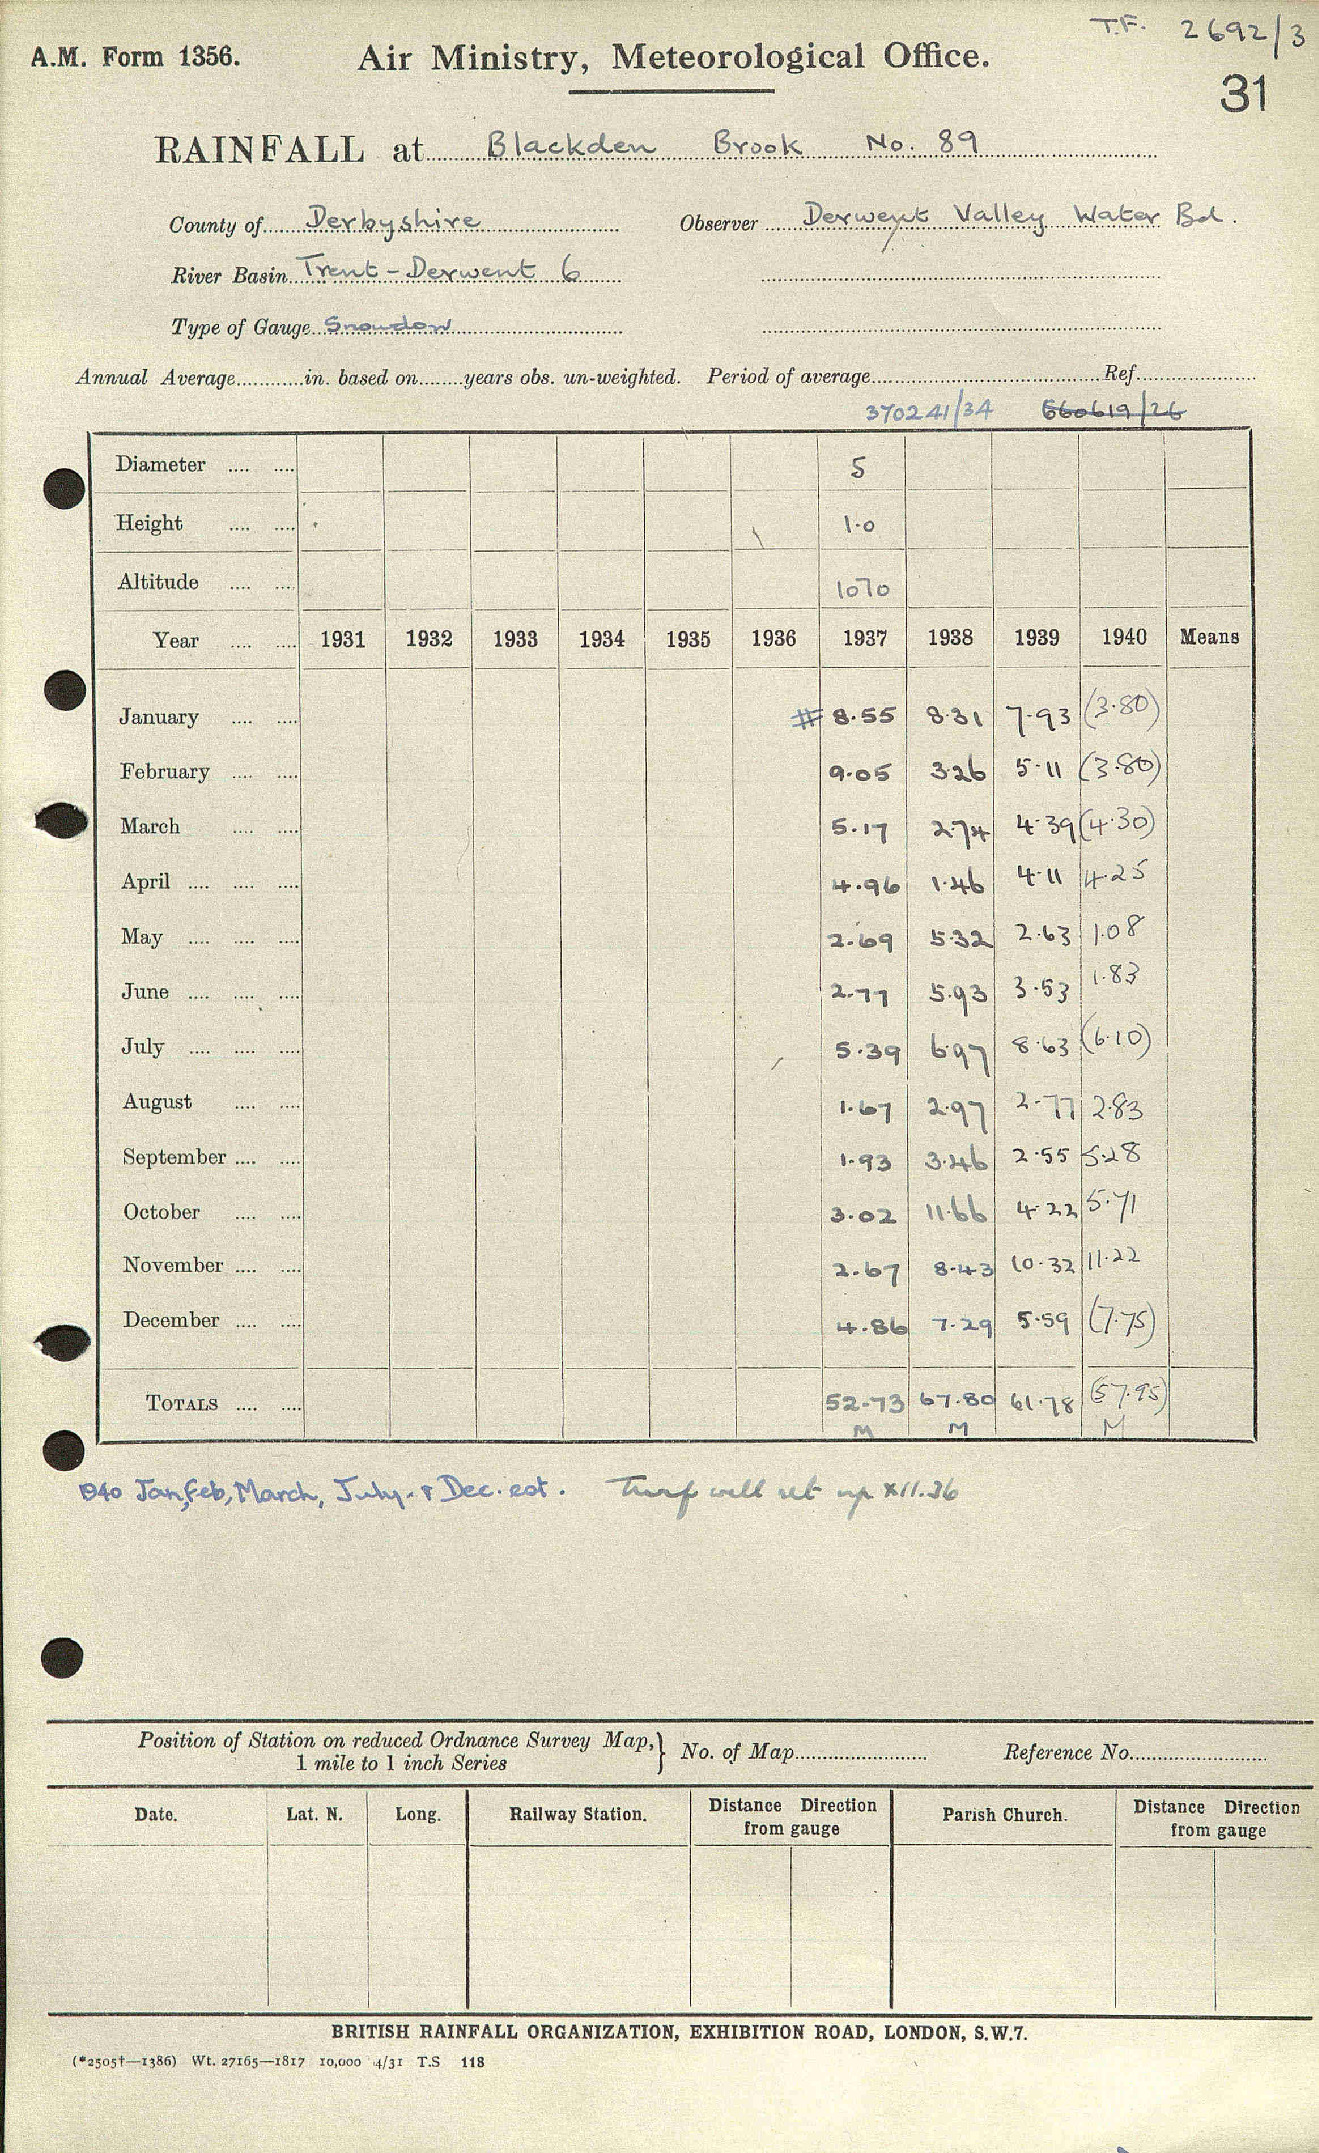 T.F. 2692/3
A.M. Form 1356. Air Ministry, Meteorological Office.
31
RAINFALL at Blackden Brook No. 89
County of Derbyshire Observer Derwent Valley Water Bd.
River Basin Trent-Derwent 6
Type of Gauge Snowdon
Annual Average in. based on years obs. un-weighted. Period of average Ref.
370241/34 660619/26
Diameter 5
Height 1.0
Altitude 1070
Year 1931 1932 1933 1934 1935 1936 1937 1938 1939 1940 Means
January # 8.55 8.31 7.93 (3.80)
February 9.05 3.26 5.11 (3.80)
March 5.17 2.74 4.39 (4.30)
April 4.96 1.46 4.11 4.25
May 2.69 5.32 2.63 1.08
June 2.77 5.93 3.53 1.83
July 5.39 6.97 8.63 (6.10)
August 1.67 2.97 2.77 2.83
September 1.93 3.46 2.55 5.28
October 3.02 11.66 4.22 5.71
November 2.67 8.43 10.32 11.22
December 4.86 7.29 5.59 (7.75)
TOTALS 52.73 67.80 61.78 (57.95)
M M M
1940 Jan, Feb, March, July & Dec. est. Turf wall set up XII.36
Position of Station on reduced Ordnance Survey Map, } No. of Map Reference No.
1 mile to 1 inch Series
Date. Lat. N. Long. Railway Station. Distance Direction Parish Church. Distance Direction
from gauge from gauge
BRITISH RAINFALL ORGANIZATION, EXHIBITION ROAD, LONDON, S.W.7.
(*2505†—1386) Wt. 27165—1817 10,000 4/31 T.S 118